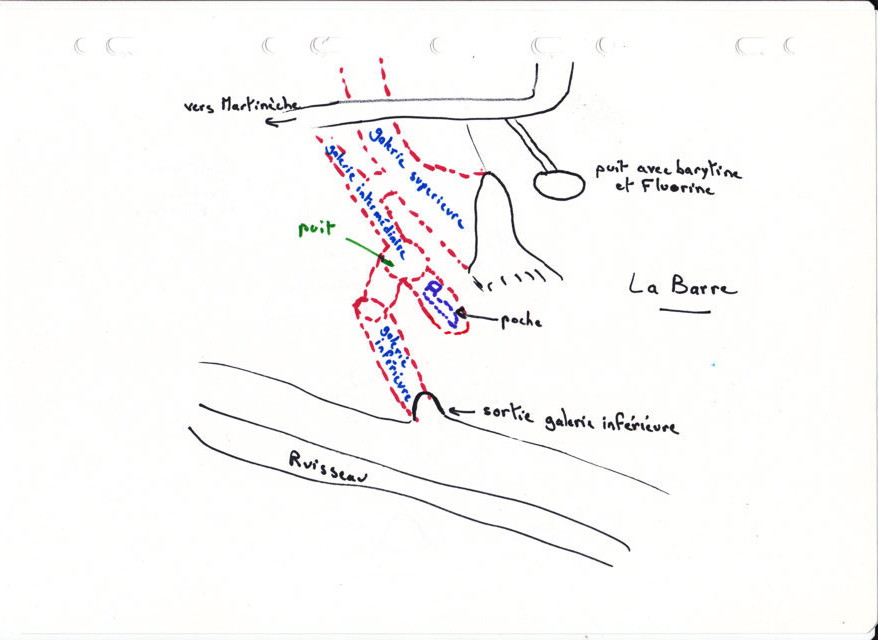 vers Martinèche
galerie supérieure
galerie intermédiaire
puit avec barytine
et Fluorine
puit
La Barre
poche
galerie
inférieure
sortie galerie inférieure
Ruisseau